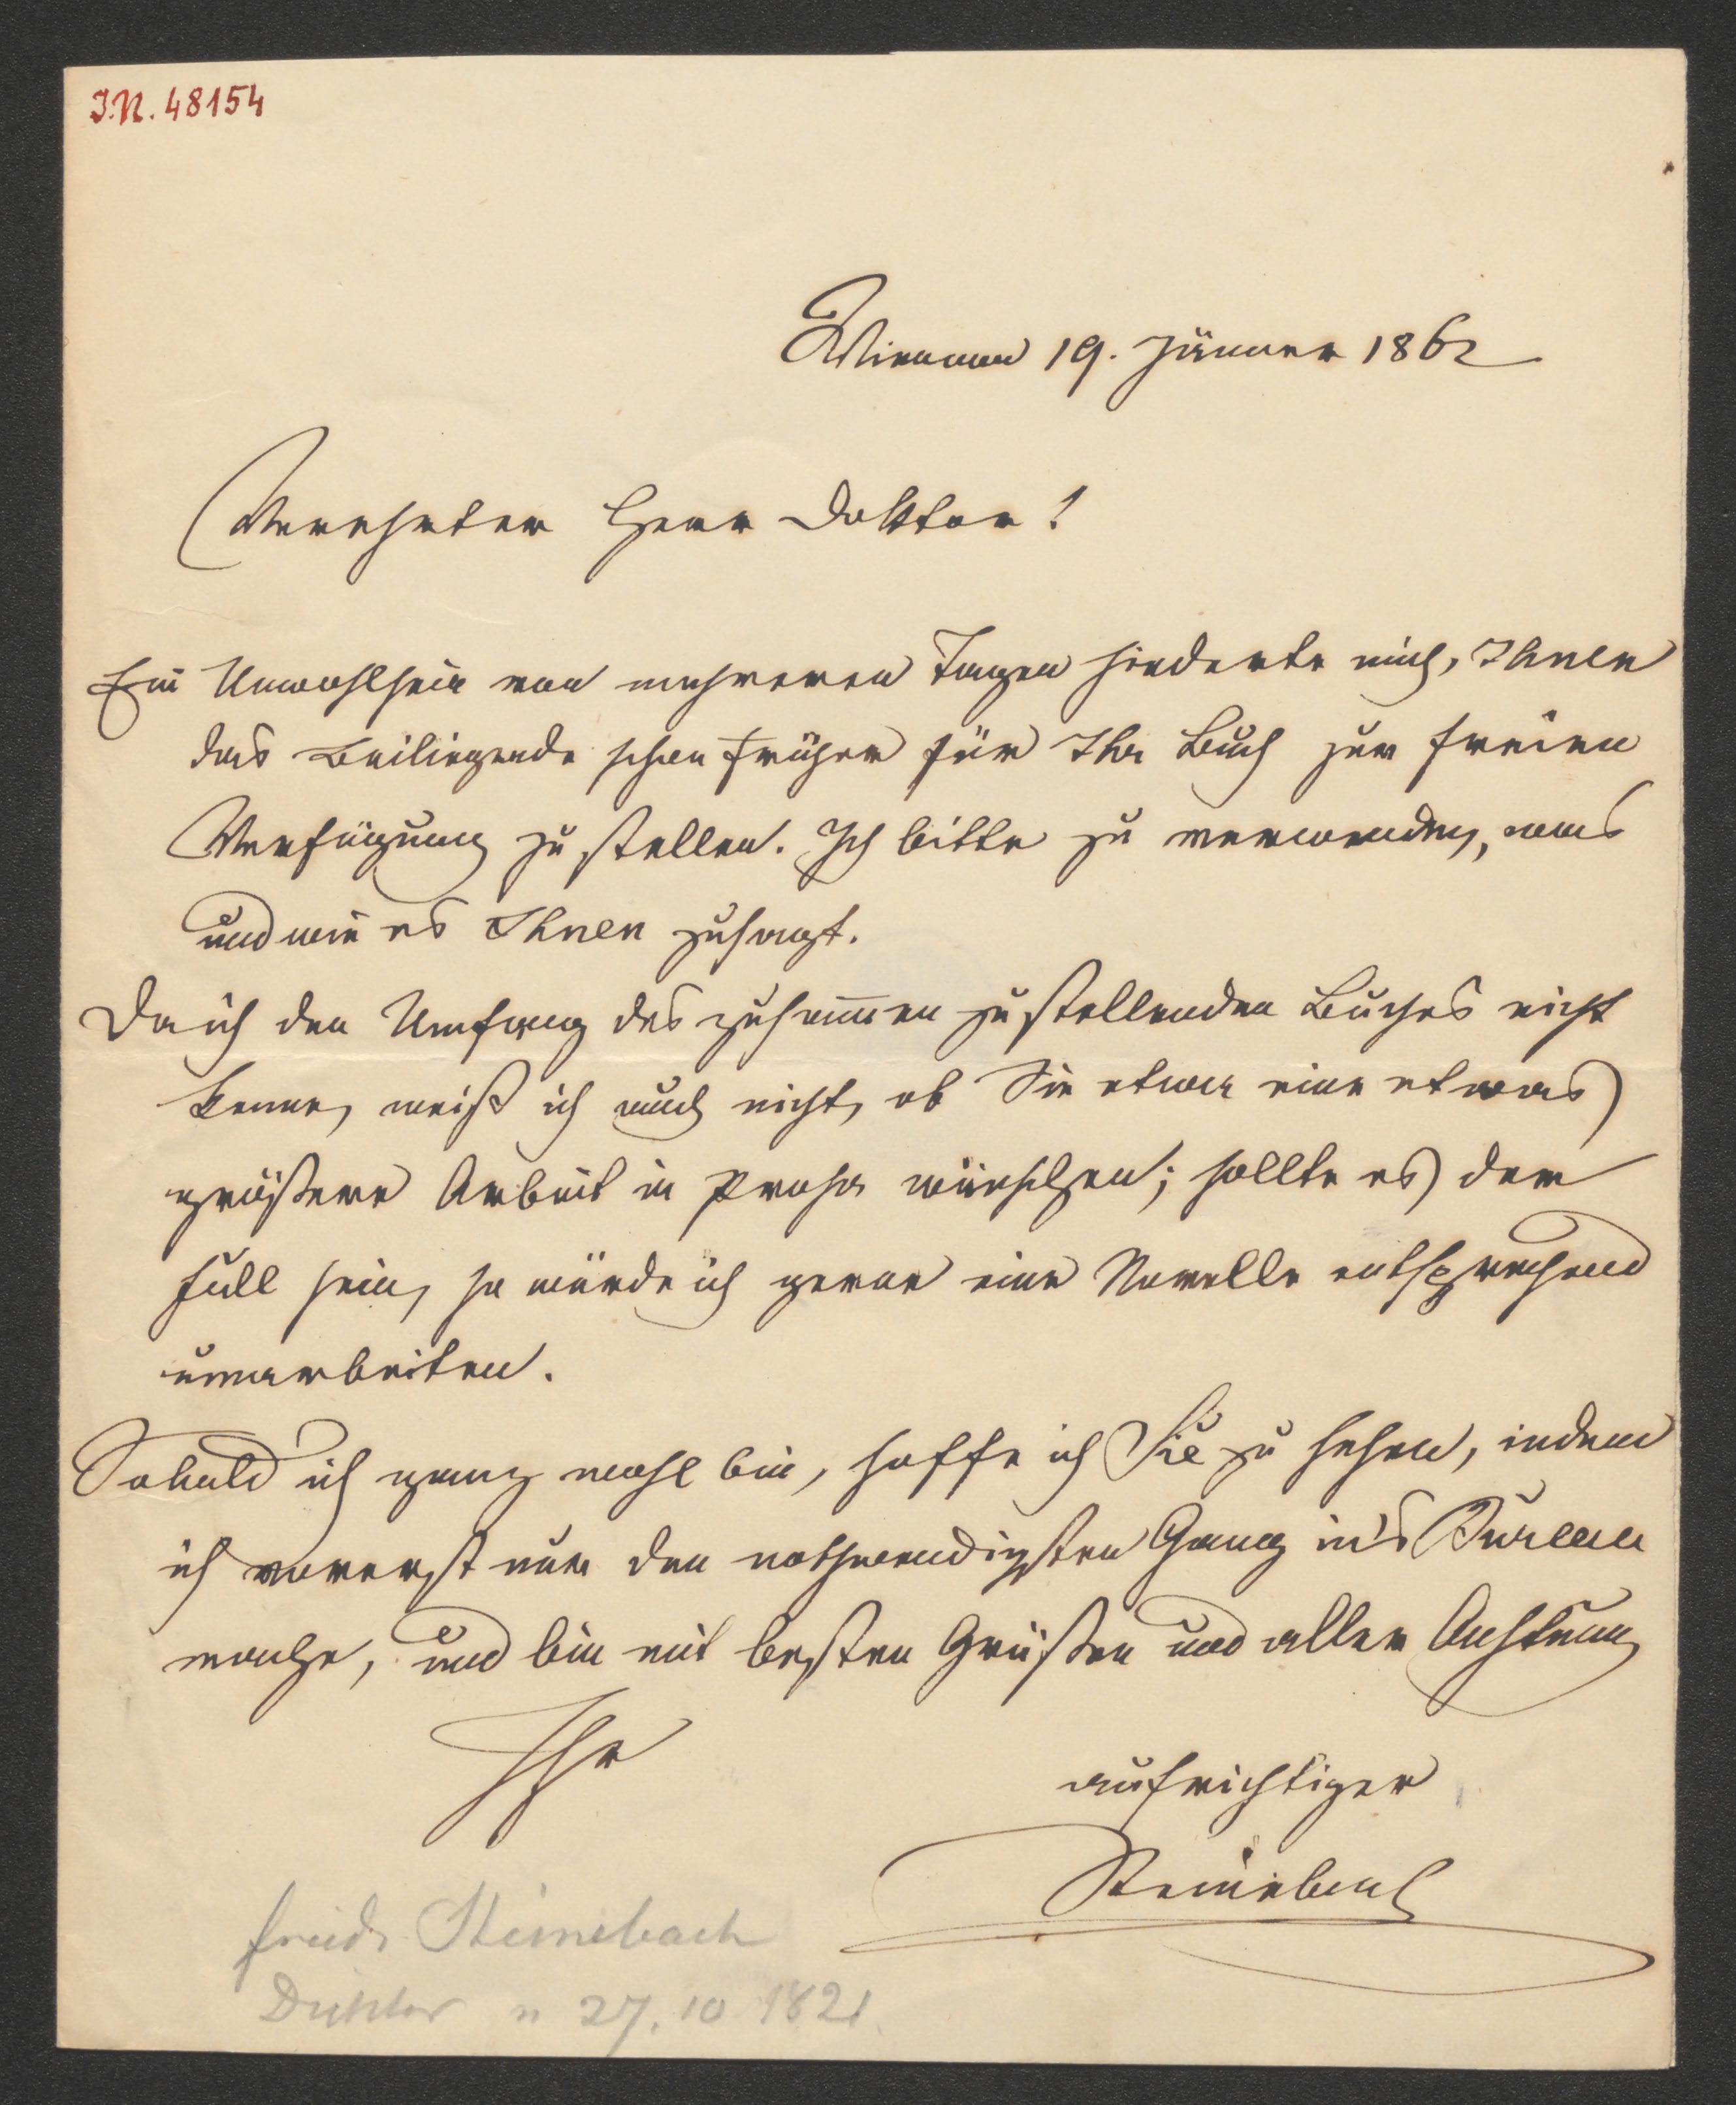 I.N. 48154
Wien am 19. Jänner 1862
Verehrter Herr Doktor!
Ein Unwohlsein von mehreren Tagen hinderte mich, Ihnen
das Beiliegende schon früher für Ihr Buch zur freien
Verfügung zu stellen. Ich bitte zu verwenden, was
und wie es Ihnen zusagt.
Da ich den Umfang des zusam̅en zu stellenden Buches nicht
kenne, weiß ich auch nicht, ob Sie etwa eine etwas
größere Arbeit in Prosa wünschen; sollte es der
Fall sein, so würde ich gerne eine Novelle entsprechend
umarbeiten.
Sobald ich ganz wohl bin, hoffe ich Sie zu sehen, indem
ich vorerst nur den nothwendigsten Gang in's Bureau
mache, und bin mit besten Grüßen und aller Achtung
Ihr
aufrichtiger
Steinebach
Friedr Steinebach
Dichter n 27. 10 1821